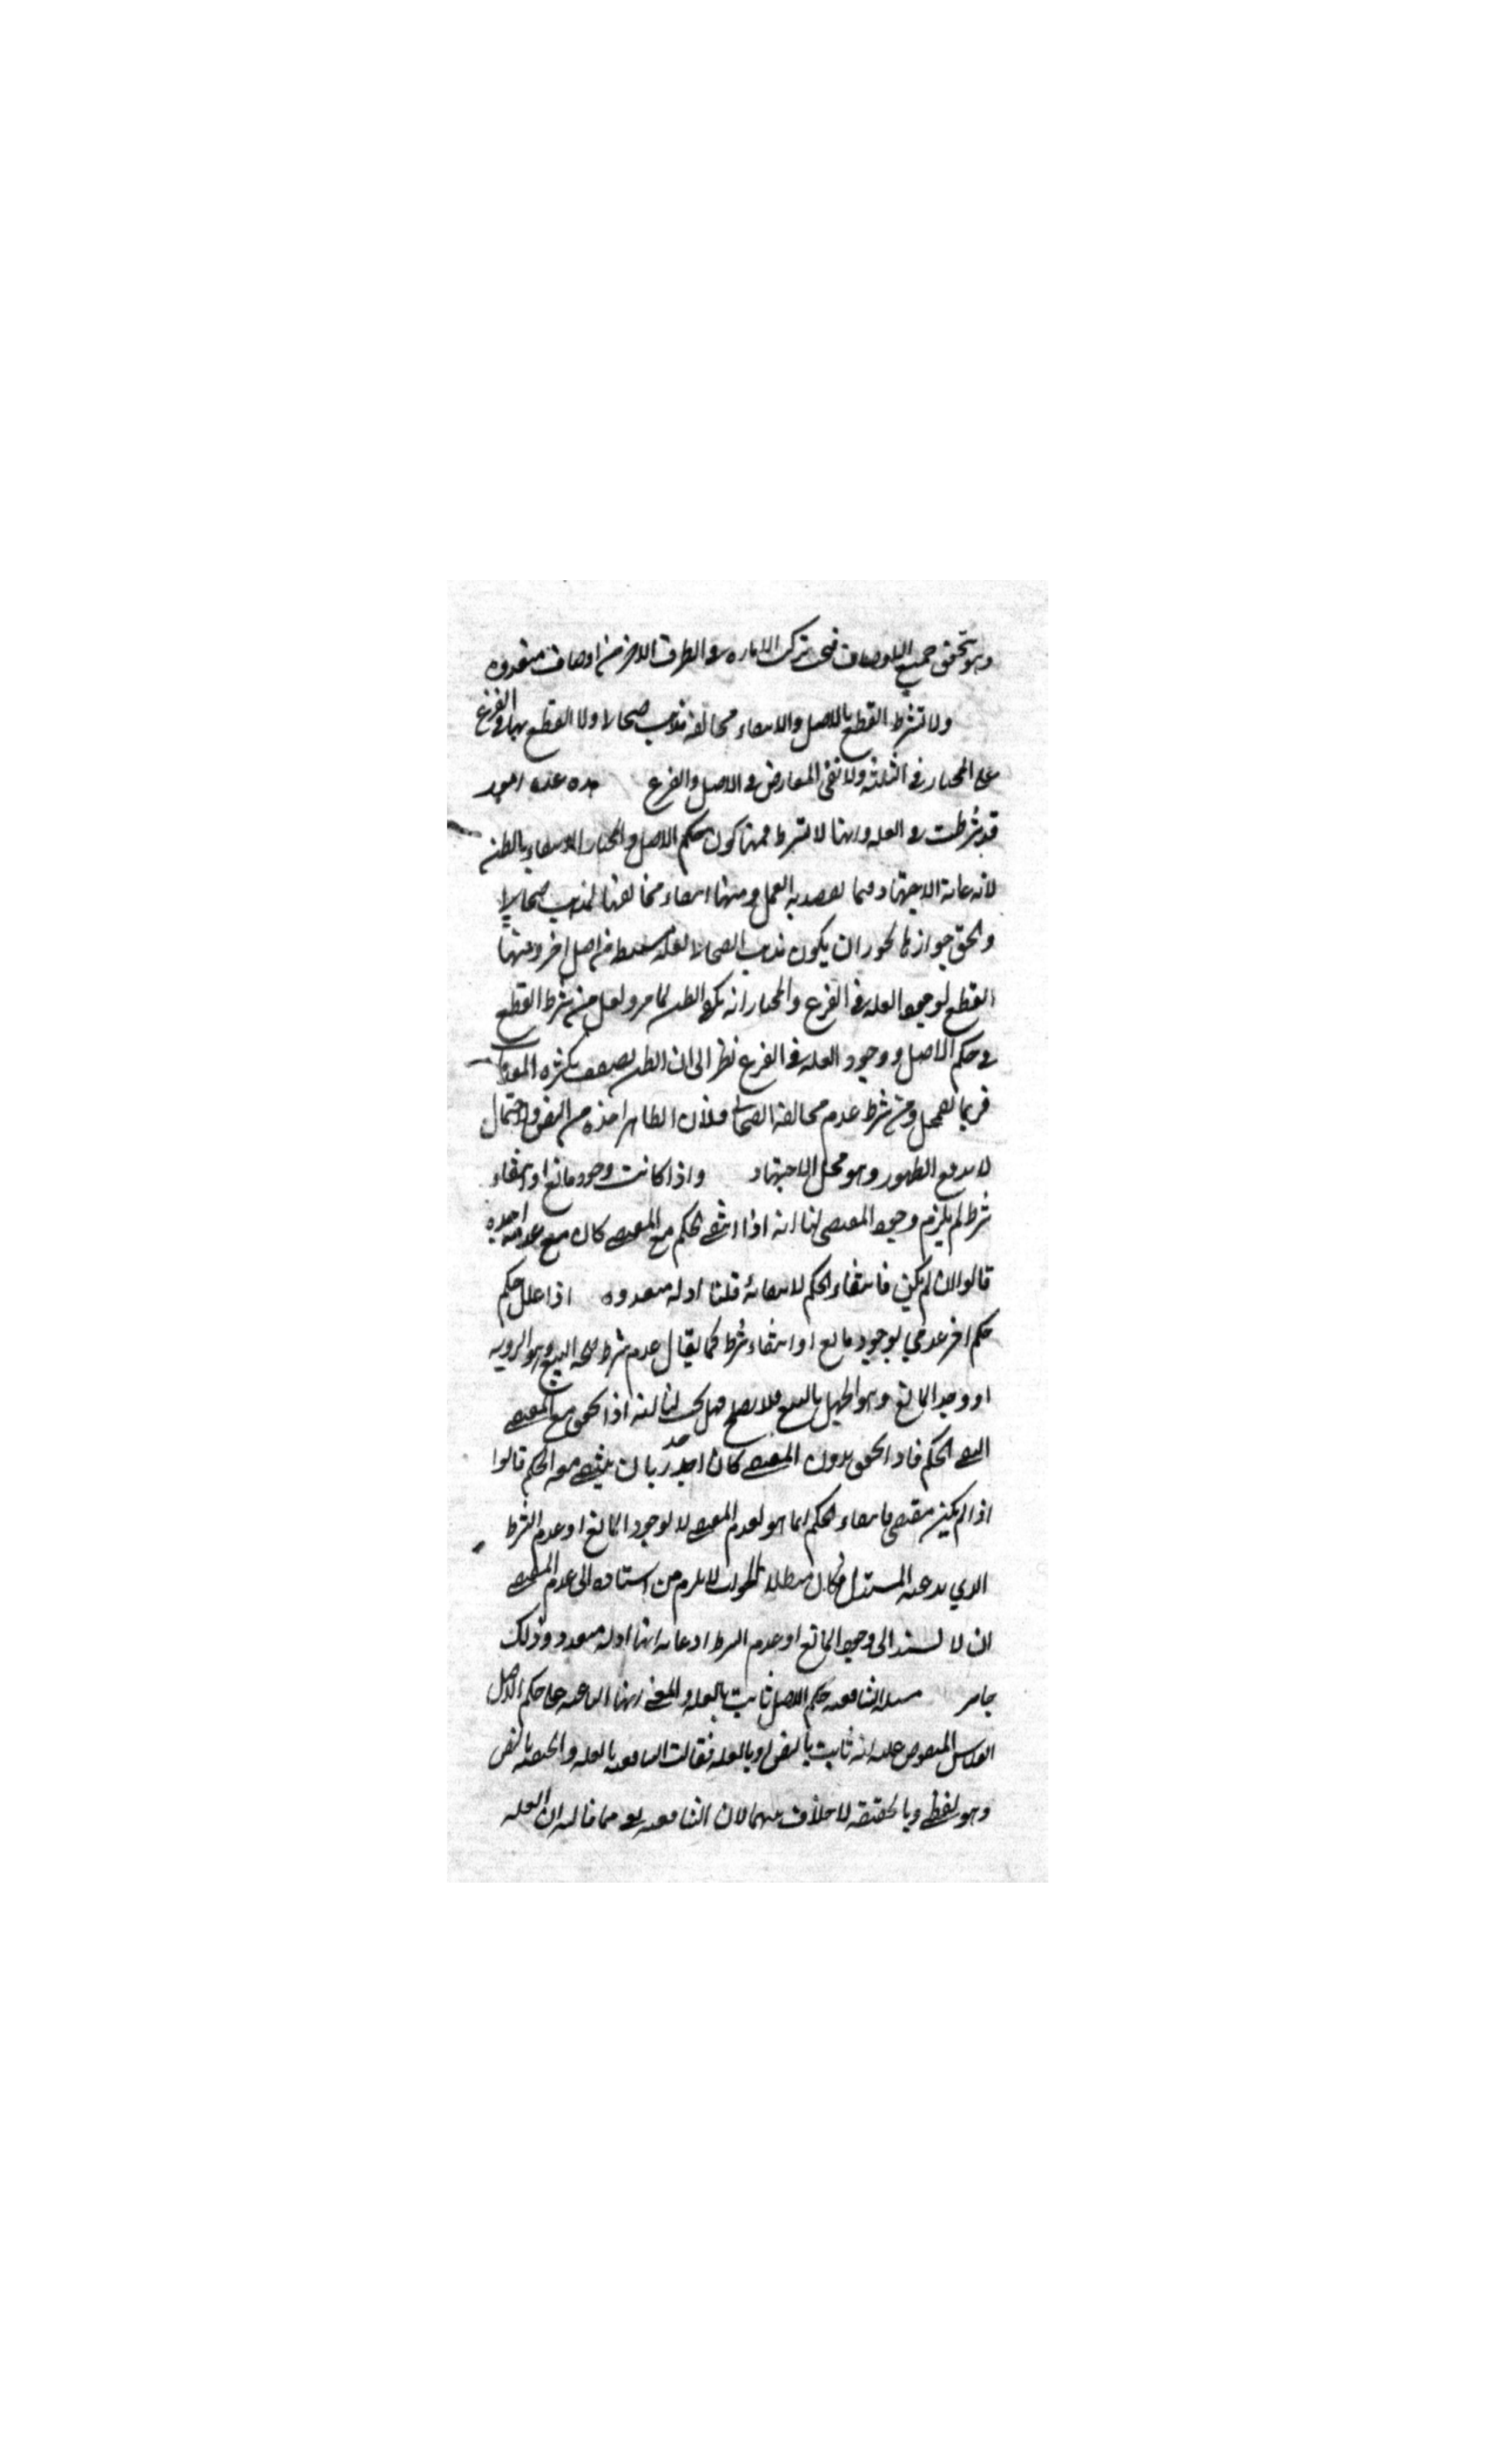 وهو تحقق جميع الاوصاف فى تركب الاماره فى الطرف الاخر من اوصاف متعدده
ولا تشترط القطع بالاصل والانتفاء مخالفه مذهب صحابى ولا القطع بها فى الفرع
على المختار فى الثلثه ولا نفى المعارض فى الاصل والفرع هذه عده امور
قد شرطت فى العله وانها لا تشترط فمنها كون حكم الاصل والمختار الاكتفاء بالظن
لانه غايه الاجتهاد فيما يقصد به العمل ومنها انتفاء مخالفتها لمذهب صحابى
والحق جوازه لجواز ان يكون مذهب الصحابى لعله مستنبطه من اصل اخر ومنها
القطع بوجود العله فى الفرع والمختار انه يكفى الظن لما مر ولعل من شرط القطع
فى حكم الاصل ووجود العله فى الفرع نظر الى ان الظن يضعف بكثره المقدمات
فربما يضمحل ومن شرط عدم مخالفه الصحابى فلان الظاهر اخذه من النص والاحتمال
لا يدفع الظهور وهو محل الاجتهاد واذا كانت وجود مانع او انتفاء
شرط لم يلزم وجود المقتضى لنا انه اذا انتفى الحكم مع المقتضى كان مع عدمه اجدر
قالوا ان لم يكن فانتفاء الحكم لانتفائه قلنا ادله متعدده اذا علل حكم
حكم اخر عدمي بوجود مانع او انتفاء شرط كما يقال عدم شرط صحه البيع وهو الرويه
او وجد المانع وهو الجهل بالمبيع فلا يصح فهل يجب لنا انه اذا تحقق مع المقتضى
انتفى الحكم فاذا تحقق بدون المقتضى كان اجدر بان ينتفى معه الحكم قالوا
اذا لم يكن مقتضى فانتفاء الحكم انما هو لعدم المقتضى لا لوجود المانع او عدم الشرط
الذي يدعيه المستدل فكان مبطلا الجواب لا يلزم من استناده الى عدم المقتضى
ان لا يستند الى وجود المانع او عدم الشرط ادعايه انها ادله متعدده وذلك
جايز مسله الشافعيه حكم الاصل ثابت بالعله والمعنى انها الباعثه على حكم الاصل
القياس المنصوص عليه انه ثابت بالنص او بالعله فقالت الشافعيه بالعله والحنفيه بالنص
وهو لفظى وبالحقيقه لا خلاف بينهما لان الشافعيه فيما قالت ان العله